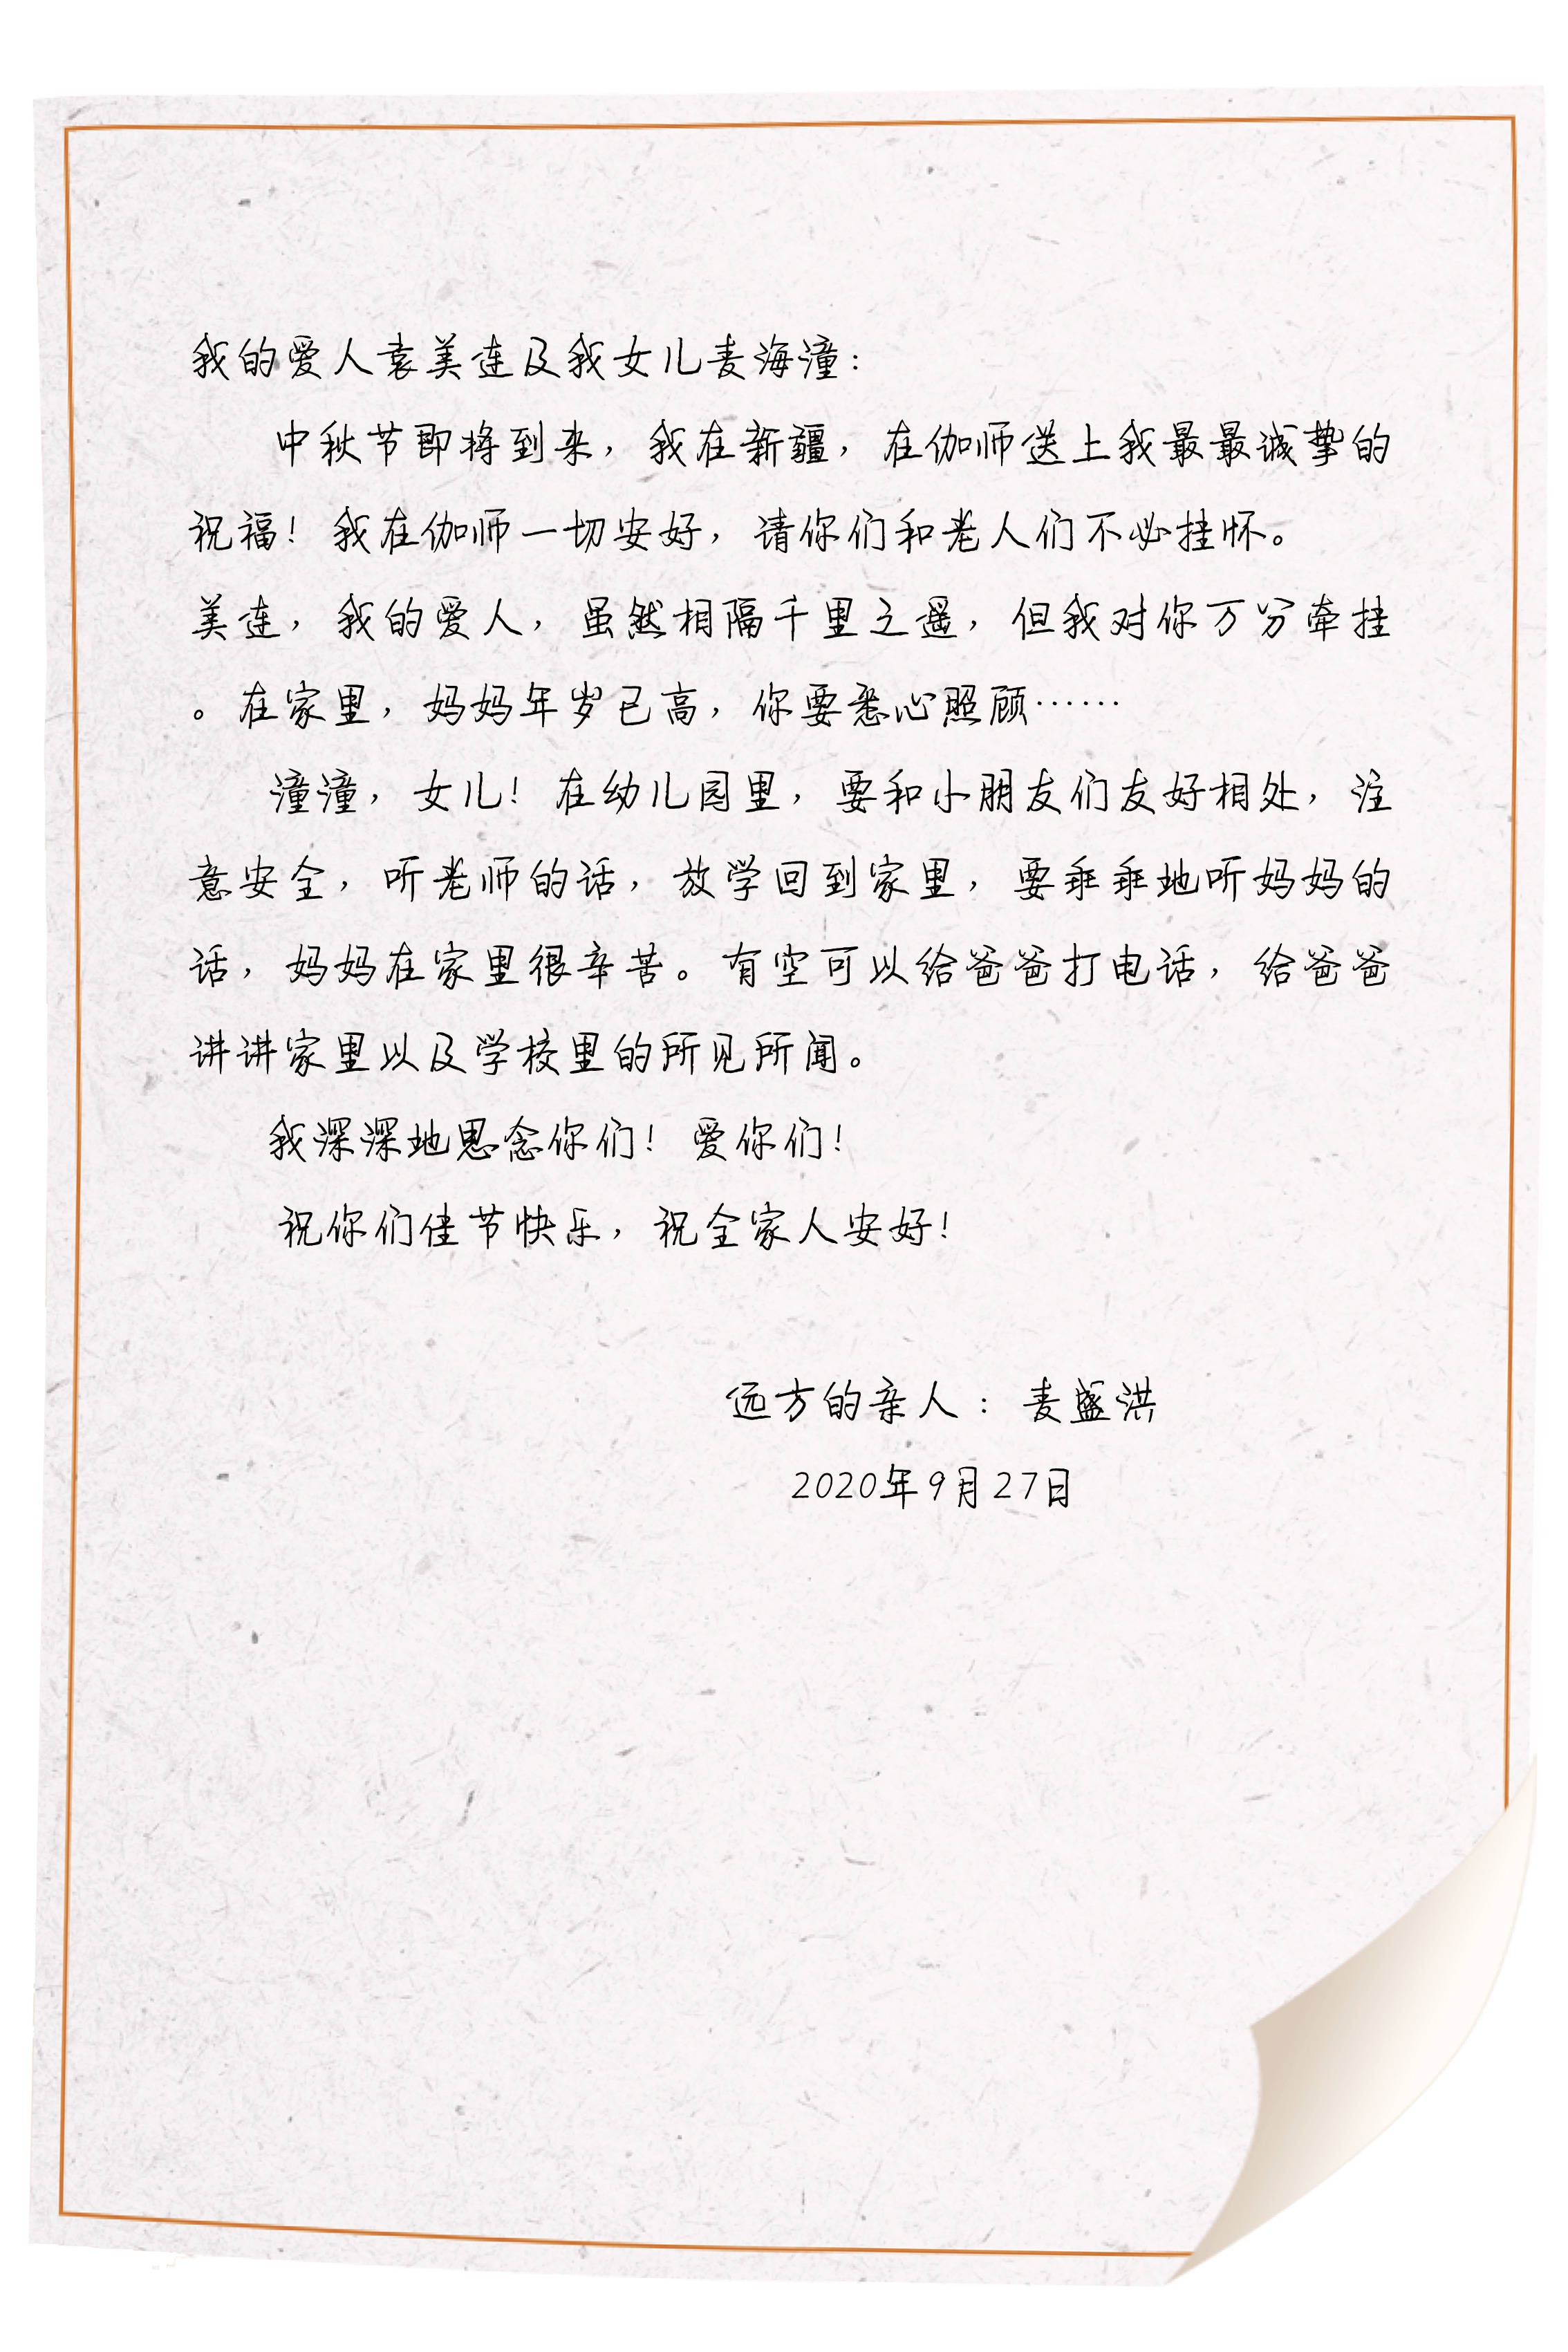 我的爱人袁美连及我女儿麦海潼：
中秋节即将到来，我在新疆，在伽师送上我最最诚挚的
祝福！我在伽师一切安好，请你们和老人们不必挂怀。
美连，我的爱人，虽然相隔千里之遥，但我对你万分牵挂
。在家里，妈妈年岁已高，你要悉心照顾……
潼潼，女儿！在幼儿园里，要和小朋友们友好相处，注
意安全，听老师的话，放学回到家里，要乖乖地听妈妈的
话，妈妈在家里很辛苦。有空可以给爸爸打电话，给爸爸
讲讲家里以及学校里的所见所闻。
我深深地思念你们！爱你们！
祝你们佳节快乐，祝全家人安好！
远方的亲人：麦盛洪
2020年9月27日